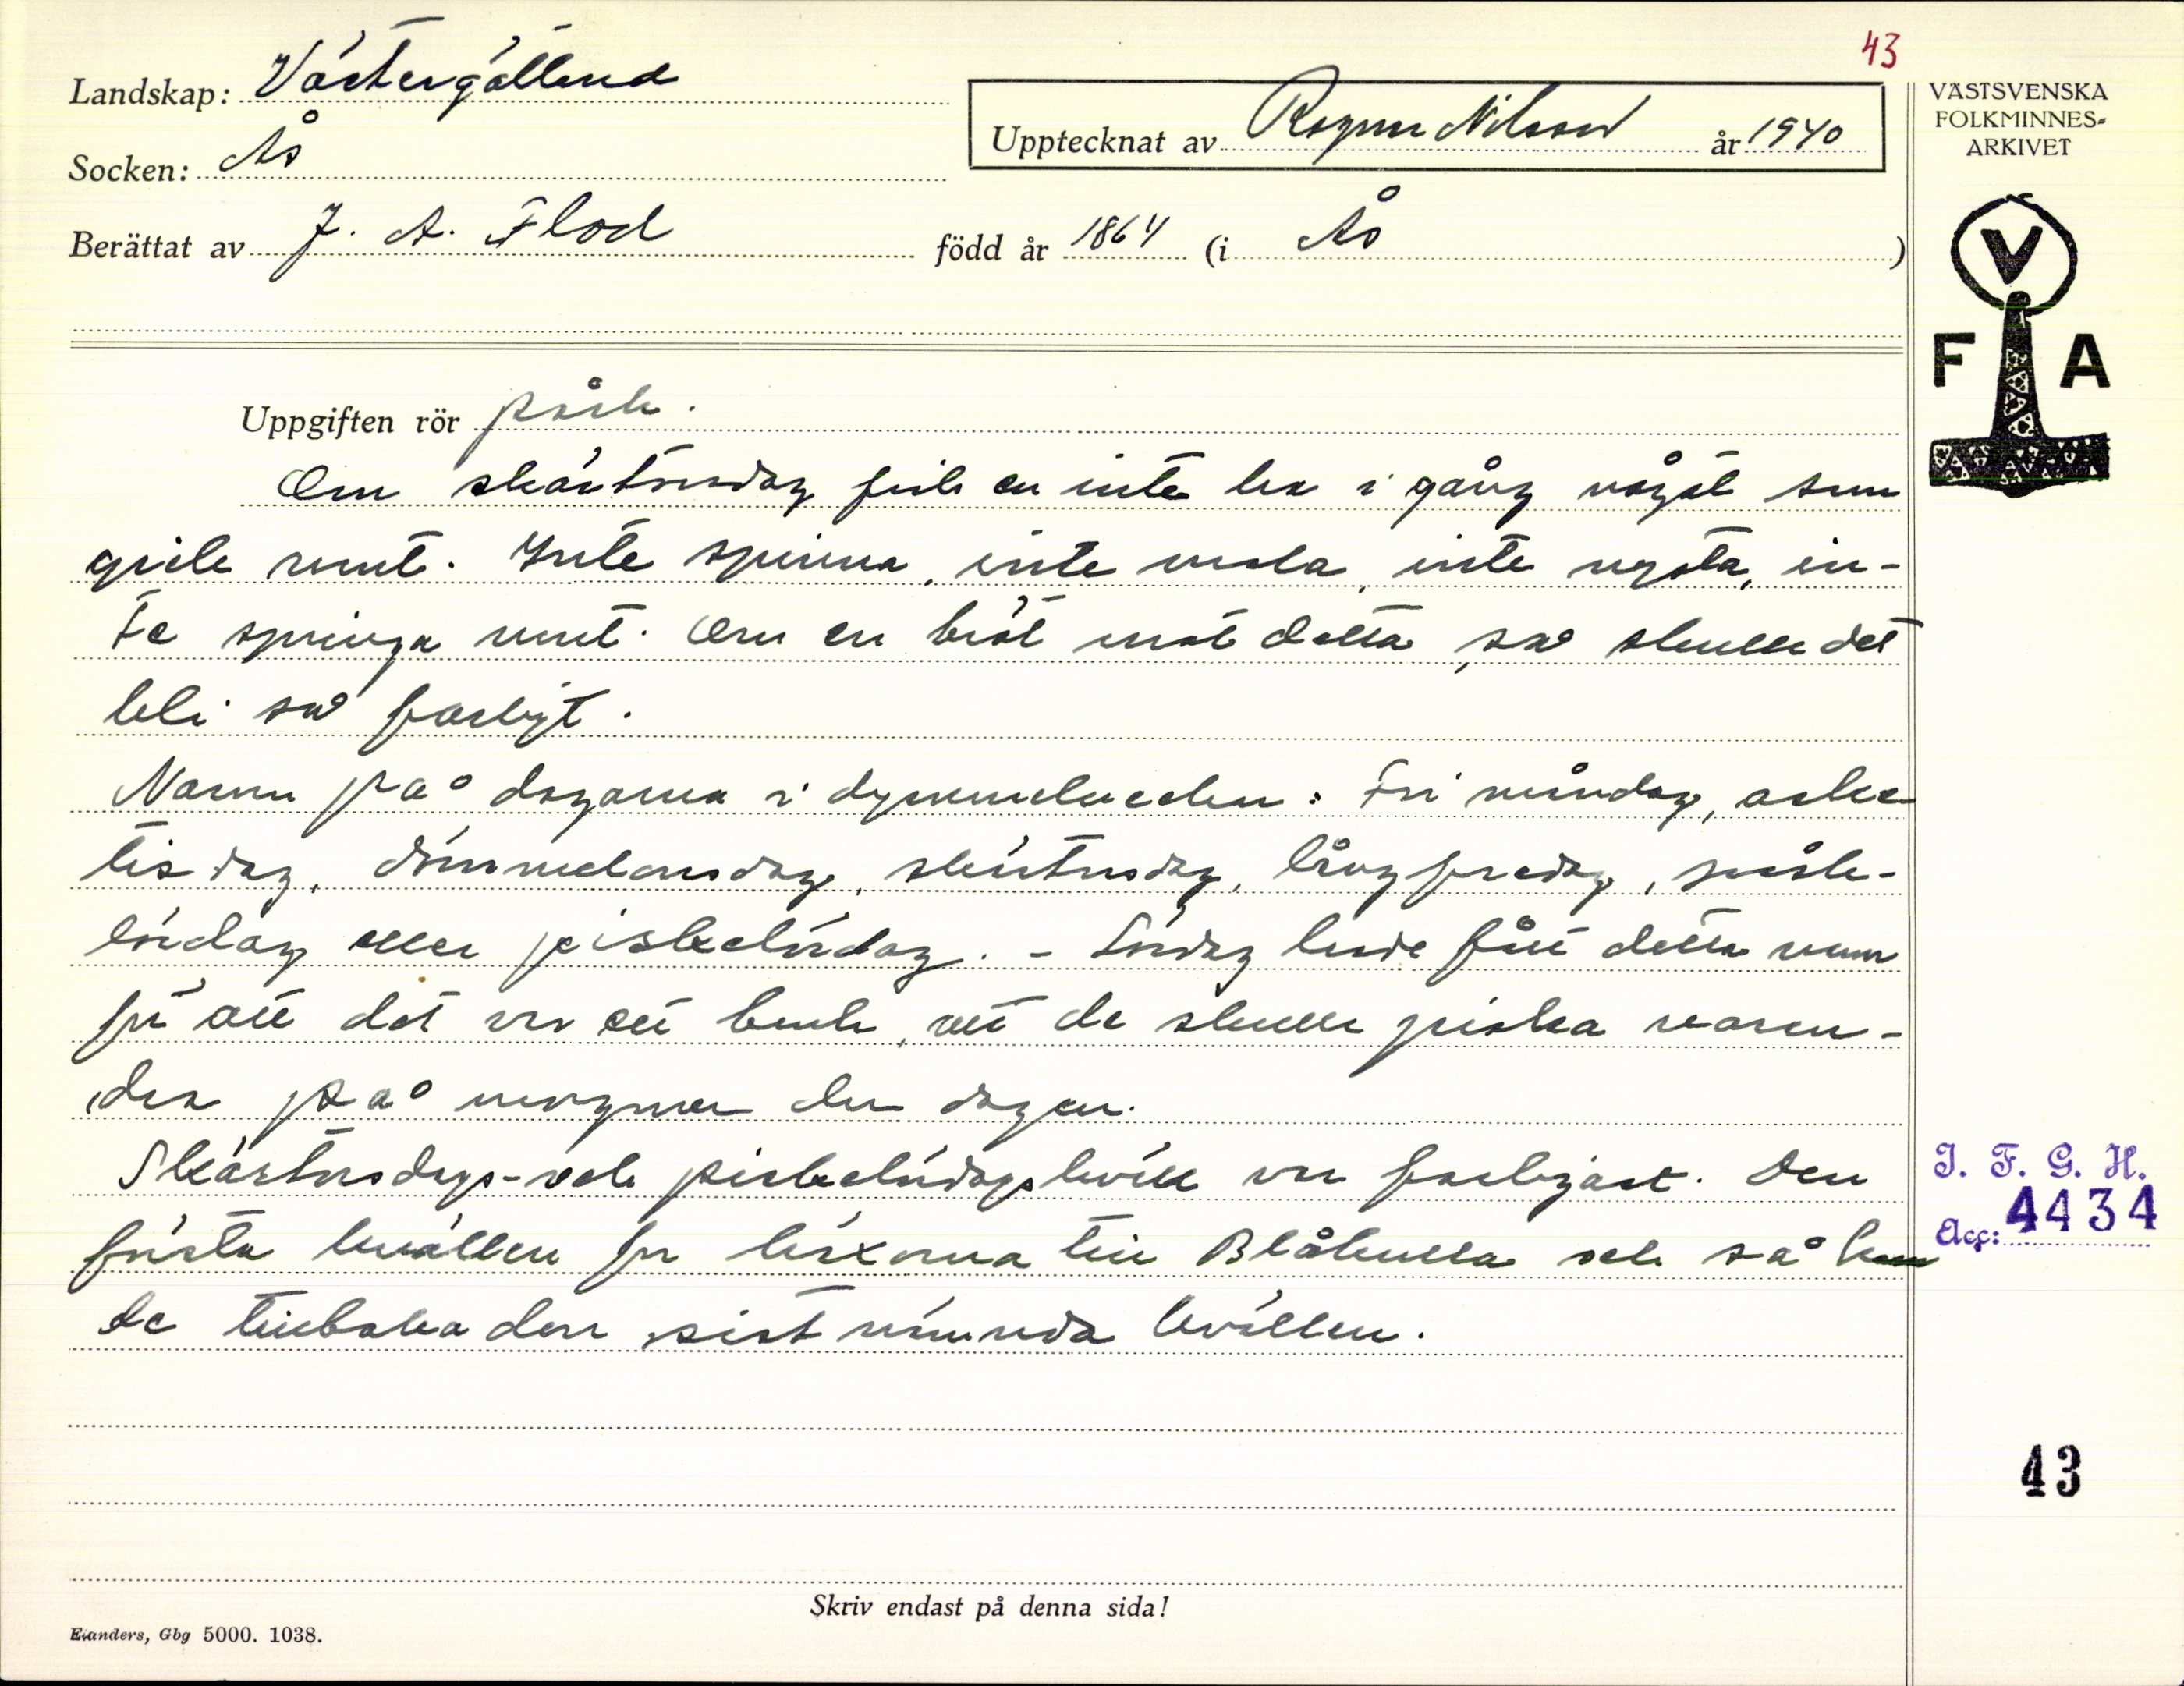 43
Landskap: Västergötland
Upptecknat av Ragnar Nilsson år 1940
VÄSTSVENSKA
FOLKMINNES-
ARKIVET
Socken: Ås
Berättat av J. A. Flod född år 1864 (i Ås )
V
F A
Uppgiften rör påsk.
Om skärtorsdag fick en inte ha i gång något som
gick runt. Inte spinna, inte mala, inte nysta, in-
te springa runt. Om en bröt mot detta, så skulle det
bli så farligt.
Namn på dagarna i dymmelveckan: Fri måndag, aske
tisdag, dömmelonsdag, skärtorsdag, långfredag, påsk-
lördag eller piskelördag. - Lördag hade fått detta namn
för att det var ett bruk, att de skulle piska varan-
dra på morgonen den dagen.
Skärtorsdags- och piskelördagskväll var farligast. Den
första kvällen for häxorna till Blåkulla och så kom
de tillbaka den sist nämnda kvällen.
I. F. G. H.
Acc: 4434
43
Skriv endast på denna sida!
Elanders, Gbg 5000. 1038.